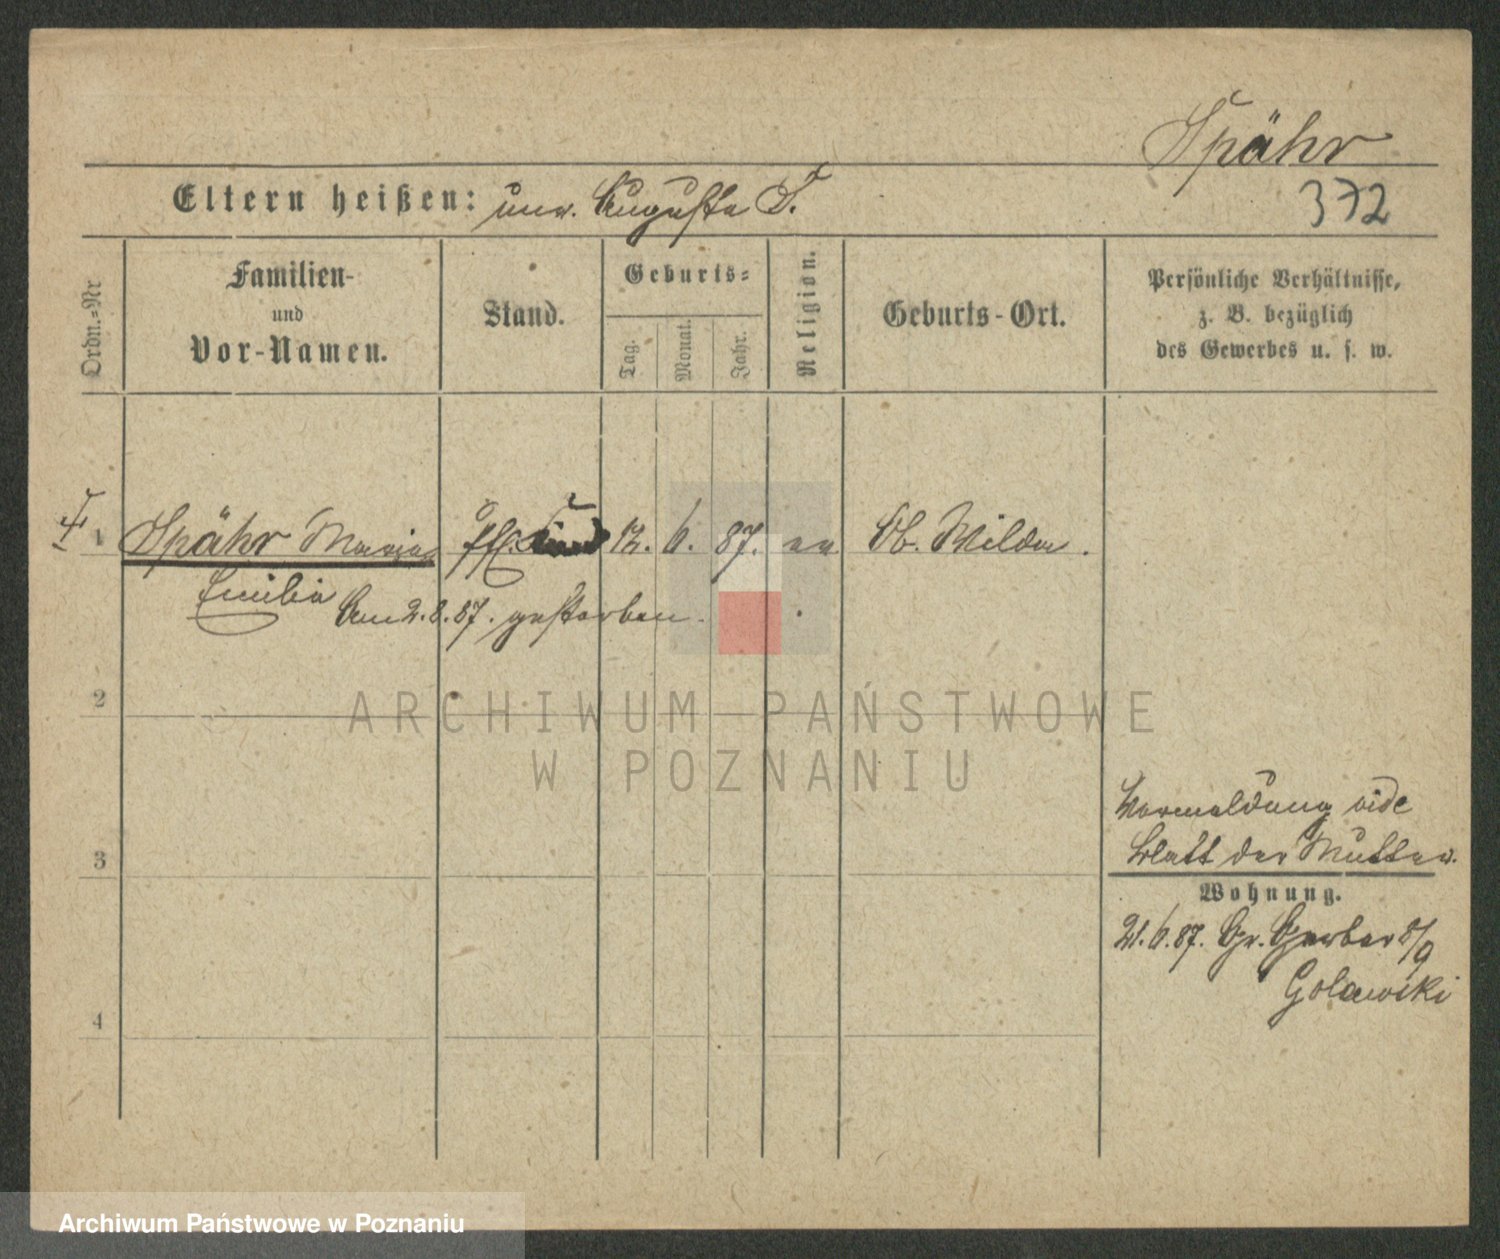 Spähr
372
Eltern heißen: unv. Auguste S.
Ordn.-Nr
Familien-
und
Vor-Namen.
Stand.
Geburts-
Tag.
Monat.
Jahr.
Religion.
Geburts-Ort.
Persönliche Verhältnisse,
z. B. bezüglich
des Gewerbes u. s. w.
1 Spähr Maria Pfl. Kind 12. 6. 87. ev. Ob. Wilda.
Emilie
Am 2.8.87. gestorben.
2
ARCHIWUM PAŃSTWOWE
W POZNANIU
Vormeldung vide
3 Blatt der Mutter.
Wohnung.
21.6.87. Gr. Gerber 8/9
Golawski
4
Archiwum Państwowe w Poznaniu